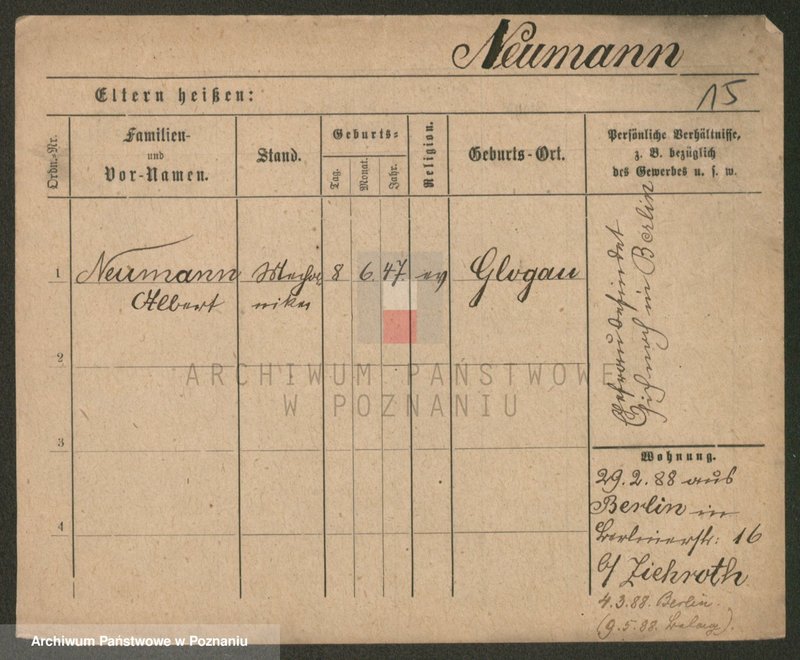 Neumann
15
Eltern heißen:
Ordn.-Nr.
Familien-
und
Vor-Namen.
Stand.
Geburts-
Tag.
Monat.
Jahr.
Religion.
Geburts-Ort.
Persönliche Verhältnisse,
z. B. bezüglich
des Gewerbes u. s. w.
1 Neumann Mecha- 8 6. 47. ev Glogau
Albert niker
Ehefrau befindet
sich noch in Berlin
2
ARCHIWUM PAŃSTWOWE
W POZNANIU
3
4
Wohnung.
29.2.88 aus
Berlin in
Berlinerstr: 16
b/ Ziehroth
4.3.88. Berlin.
(9.5.88.
Archiwum Państwowe w Poznaniu